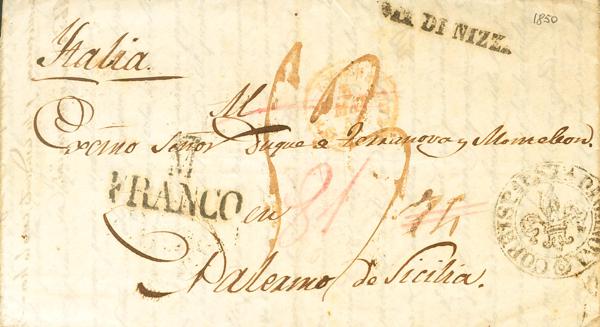 1850
DI NIZZ
Italia.
Al
Excmo Señor Duque de Terranova y Monteleon.
M
FRANCO
en
81
Palermo de Sicilia.